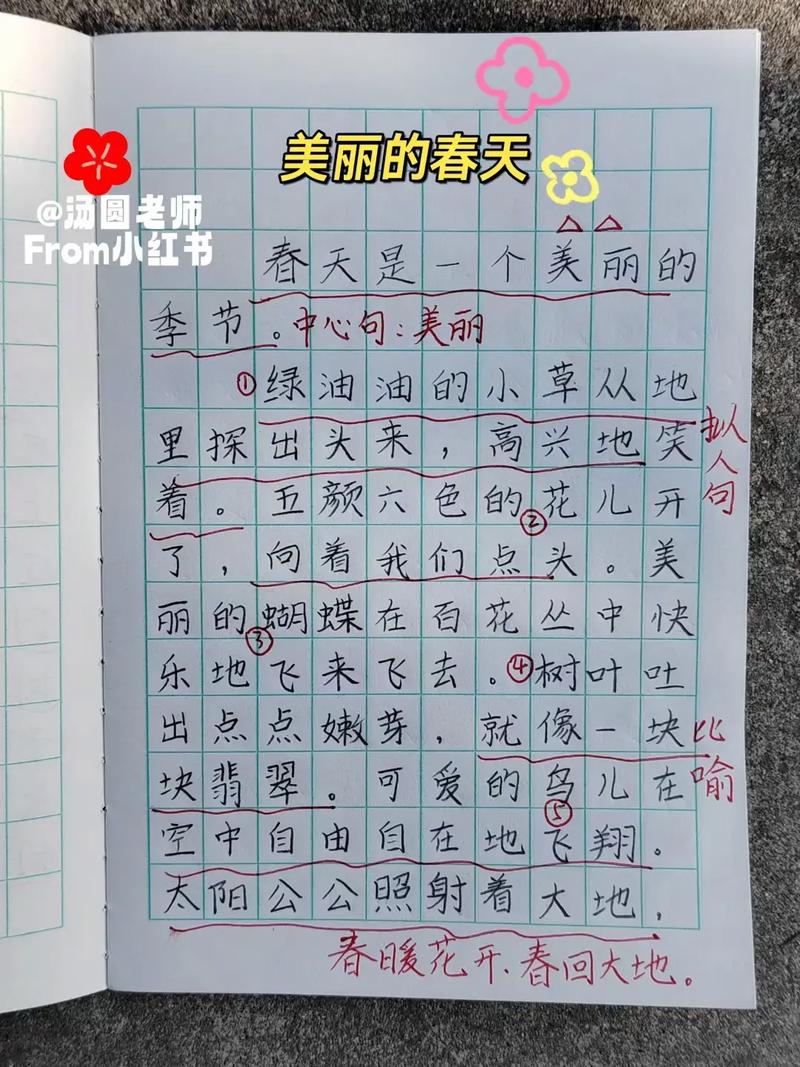 美丽的春天
@汤圆老师
From小红书
春天是一个美丽的
季节。中心句:美丽
①绿油油的小草从地
里探出头来,高兴地笑
拟人句
着。五颜六色的花儿开
②
了,向着我们点头。美
丽的蝴蝶在百花丛中快
③
乐地飞来飞去。④树叶吐
出点点嫩芽,就像一块
比喻
块翡翠。可爱的鸟儿在
⑤
空中自由自在地飞翔。
太阳公公照射着大地,
春暖花开、春回大地。